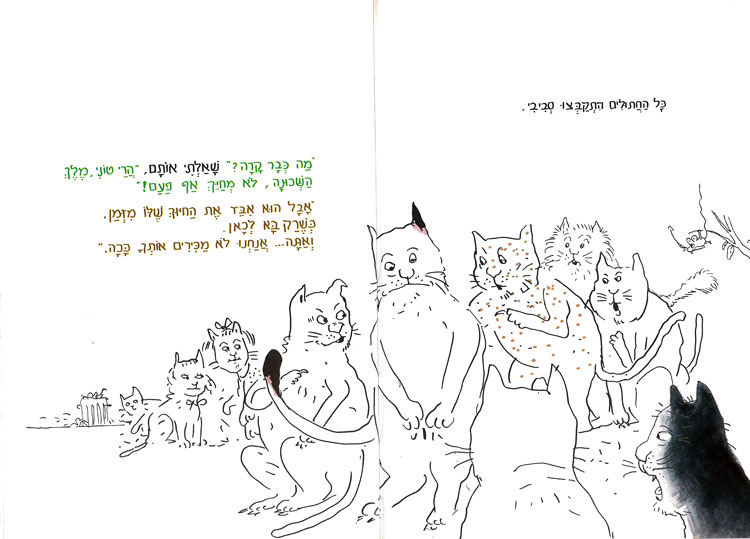 כָּל הַחֲתוּלִים הִתְקַבְּצוּ סְבִיבִי.
"מַה כְּבָר קָרָה?" שָׁאַלְתִּי אוֹתָם, "הֲרֵי טוֹנִי, מֶלֶךְ
הַשְּׁכוּנָה, לֹא מְחַיֵּךְ אַף פַּעַם!"
"אֲבָל הוּא אִבֵּד אֶת הַחִיּוּךְ שֶׁלּוֹ מִזְּמַן,
כְּשֶׁרַק בָּא לְכָאן.
וְאַתָּה... אֲנַחְנוּ לֹא מַכִּירִים אוֹתְךָ כָּכָה."